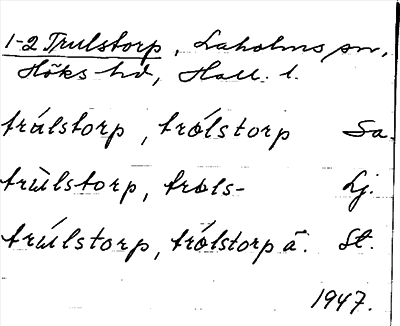 1-2 Trulstorp, Laholms sn,
Höks hd, Hall. l.
trúlstorp, trólstorp Sa.
trùlstorp, trols- Lj.
trúlstorp, trólstorp ã. St.
1947.